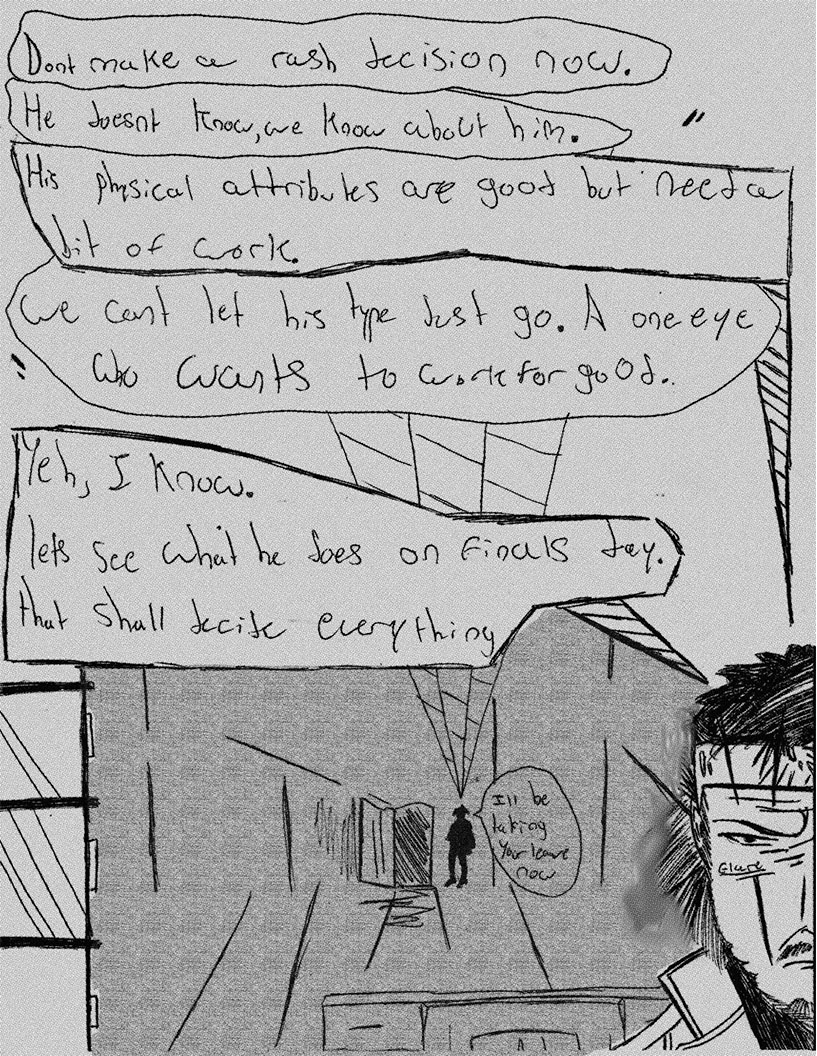 Dont make a rash decision now.
He doesnt know, we know about him.
His physical attributes are good but need a
bit of work.
We cant let his type Just go. A one eye
who wants to work for good..
Yeh, I know.
lets see what he does on Finals day.
that shall decide everything
Ill be
taking
your leave
now
Glare